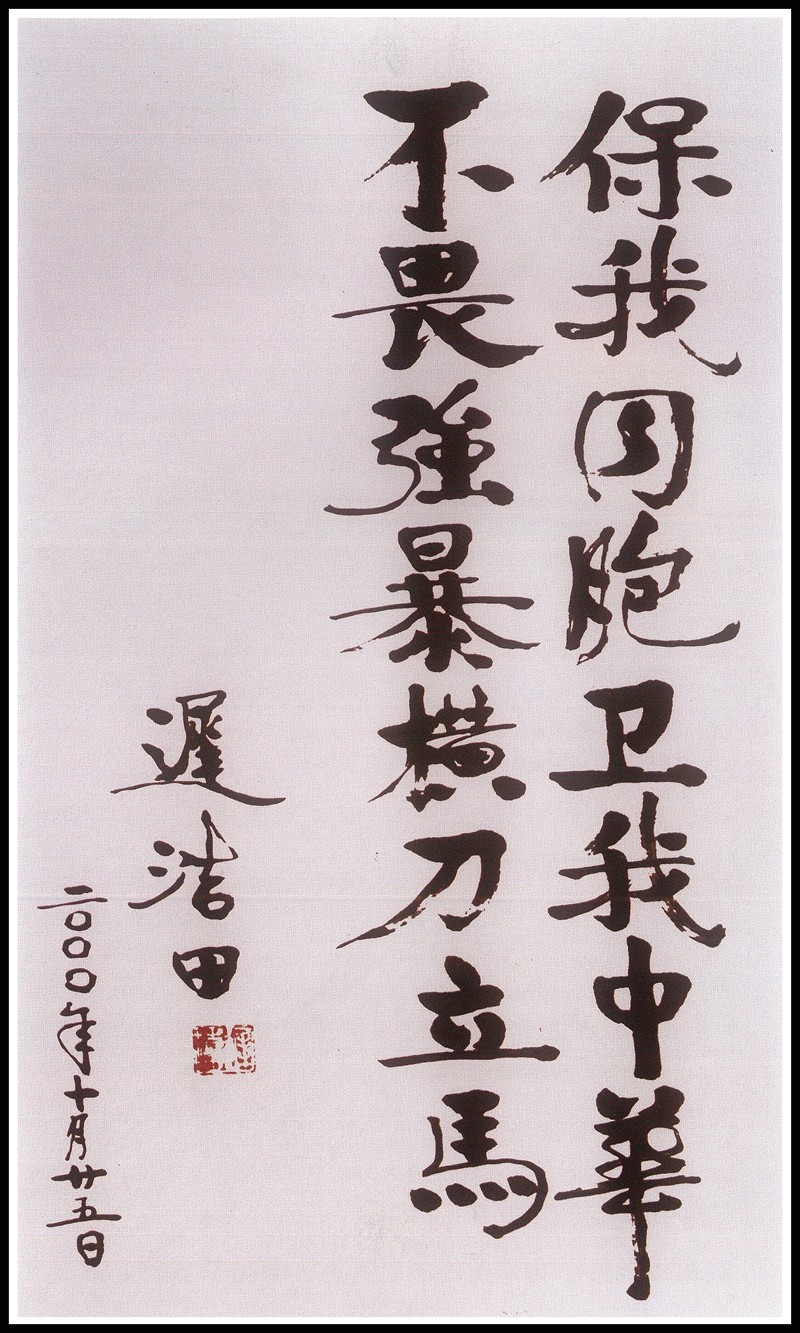 保我同胞卫我中華
不畏強暴横刀立馬
遲浩田
二〇〇〇年十月廿五日